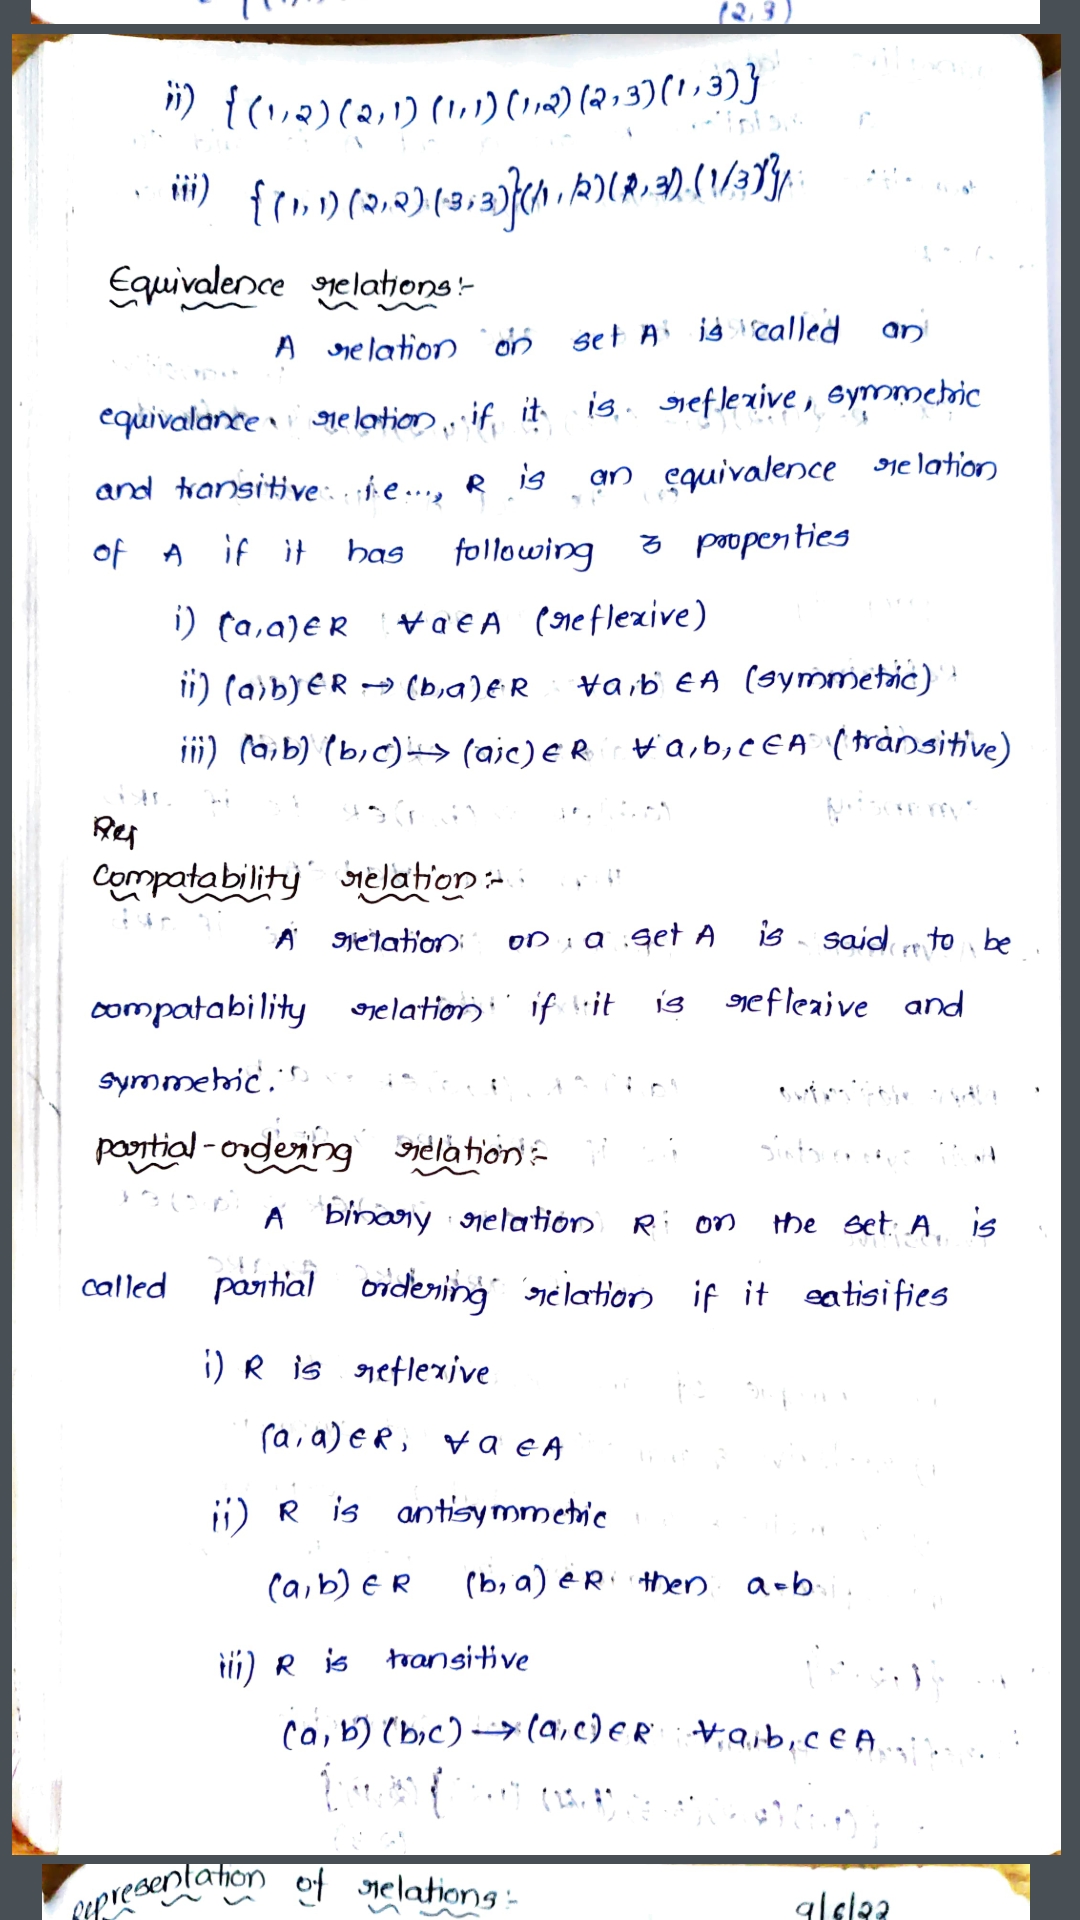 (2,3)
ii) {(1,2)(2,1)(1,1)(1,2)(2,3)(1,3)}
iii) {(1,1)(2,2)(3,3)}(1,2)(2,3)(1,3)}
Equivalence relations:-
A relation on set A is called an
equivalance relation, if it is reflexive, symmetric
and transitive i.e..., R is an equivalence relation
of A if it has following 3 properties
i) (a,a)∈R ∀a∈A (reflexive)
ii) (a,b)∈R → (b,a)∈R ∀a,b∈A (symmetric)
iii) (a,b) (b,c) → (a,c)∈R ∀a,b,c∈A (transitive)
Compatability relation:-
A relation on a set A is said to be
compatability relation if it is reflexive and
symmetric.
partial-ordering relation:-
A binary relation R on the set A is
called partial ordering relation if it satisifies
i) R is reflexive
(a,a)∈R, ∀a∈A
ii) R is antisymmetric
(a,b)∈R (b,a)∈R then a=b
iii) R is transitive
(a,b)(b,c) → (a,c)∈R ∀a,b,c∈A
representation of relations:-
9/6/22